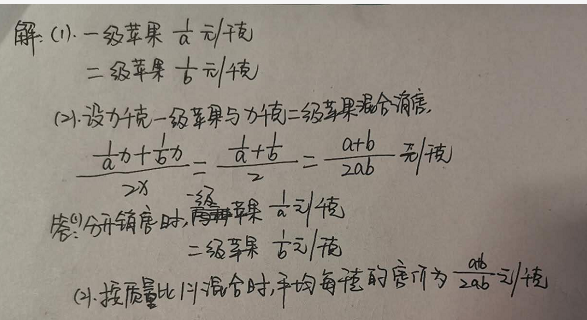 解:(1).一级苹果 1/a 元/千克
二级苹果 1/b 元/千克
(2).设x千克一级苹果与x千克二级苹果混合销售,
(1/a x + 1/b x)/2x = (1/a + 1/b)/2 = (a+b)/2ab 元/千克
答:(1)分开销售时,一级苹果 1/a 元/千克
二级苹果 1/b 元/千克
(2).按质量比1:1混合时,平均每千克的售价为 (a+b)/2ab 元/千克